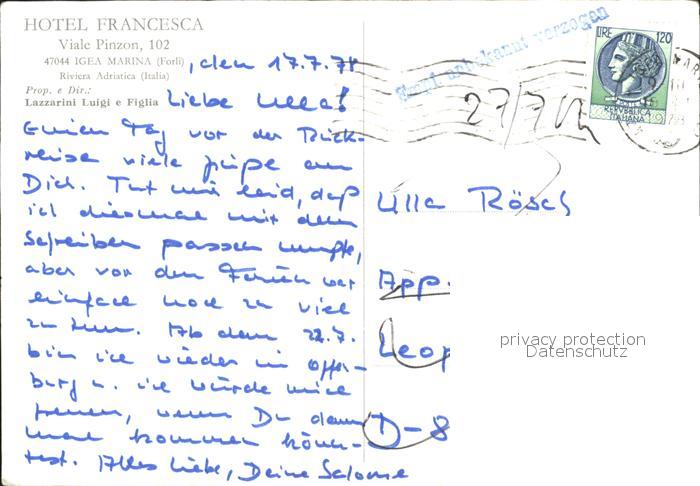 HOTEL FRANCESCA
Viale Pinzon, 102
47044 IGEA MARINA (Forlì)
Riviera Adriatica (Italia)
Prop. e Dir.:
Lazzarini Luigi e Figlia
, den 17.7.78
Liebe Ulla!
Einen Tag vor der Rück-
reise viele Grüße an
Dich. Tut mir leid, daß
ich diesmal mit dem
Schreiben passen mußte,
aber vor den Ferien war
einfach noch zu viel
zu tun. Ab dem 22.7.
bin ich wieder in Offen-
burg u. ich würde mich
freuen, wenn Du dann
mal kommen könn-
test. Alles Liebe, Deine Salome
unbekannt verzogen
27/7
LIRE 120
REPVBBLICA
ITALIANA
Ulla Rösch
App.
Leop
D-8
privacy protection
Datenschutz